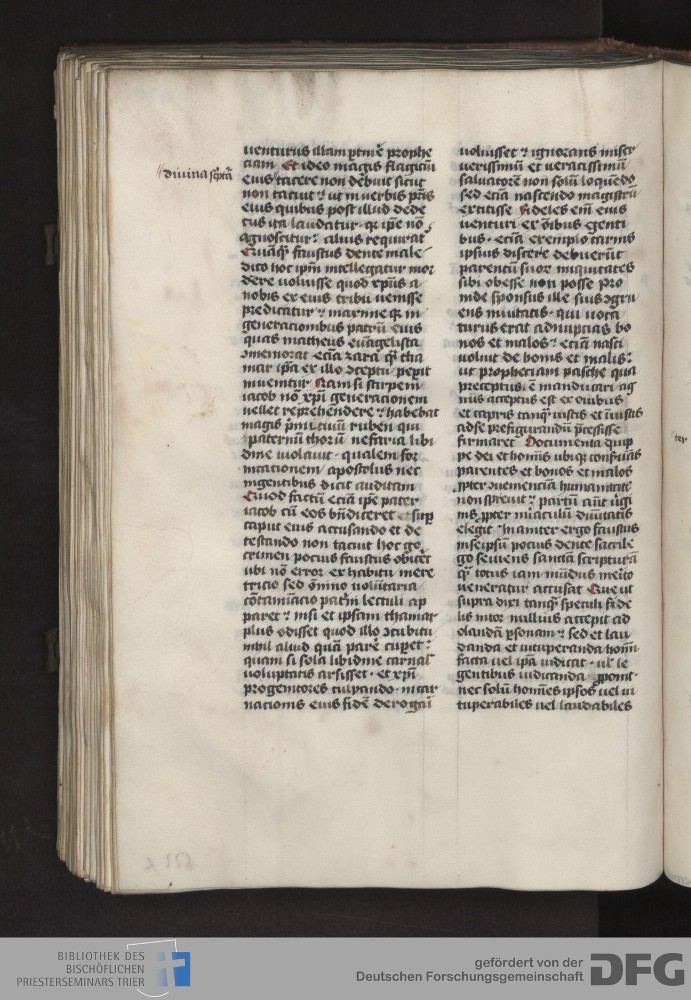 divina sc̄ptā
uenturus illam ptinē prophe
ciam Et ideo magis flagiciū
eius tacere non debuit sicut
non tacuit ut in uerbis pr̄is
eius quibus post illud dede
cus ita laudatur qr ipē nō
agnoscitur alius requirat
Quāqͥ faustus dente male
dico hoc ipm̄ intellegatur mor
dere uoluisse quod xpūs a
nobis ex eius tribu uenisse
predicatur maxime qr in
generacionibus patrū eius
quas matheus euāgelista
ɔmemorat ecīā zarā qͥ tha
mar ip̄a ex illo ɔceptū pepit
inuenitur Nam si stirpem
iacob nō xp̄i generacionem
uellet reprehendere habebat
magis p̄mitiuū ruben qui
paternū thorū nefaria libi
dine uiolauit qualem for
nicacionem apostolus nec
in gentibus dicit auditam
Quod factū ecīā ipē pater
iacob cū eos bn̄diceret sup̄
caput eius accusando et de
testando non tacuit hoc gͦ
crimen pocius faustus obicet
ubi nō error ex habitu mere
tricio sed om̄ino uolūtaria
cōtaminacio pat̄ni lectuli ap
paret nisi et ipsam thamar
plus odisset quod illo ɔcubitu
nihil aliud quā pare cupet
quam si sola libidine carnal
uoluptatis arsisset et xp̄i
progenitores culpando incar
nacionis eius fidē derogaī
uoluisset ignorans miser
uerissimū et ueracissimū
saluatorē non solū loquēdo
sed ecīā nascendo magistrū
extitisse Fideles em̄ eius
uenturi ex om̄ibus genti
bus ecīā exemplo carnis
ipsius discere debuerūt
parentū suor iniquitates
sibi obesse non posse Pro
inde sponsus ille suis ɔgru
ens inuitatis qui uoca
turus erat ad nupcias bo
nos et malos ecīā nasci
uoluit de bonis et malis
ut propheciam pasche qua
preceptus ē manducari ag
nus acceptus est ex ouibus
et capris tanqͥ iustis et īiustis
ad se prefigurandū p̄cessisse
firmaret Documenta quip
pe dei et hom̄is ubiqͥ conseruās
parentes et bonos et malos
ꝓpter ɔuenienciā humanitatis
non spreuit partū aūt uirgi
nis ꝓpter miraculū diuītatis
elegit Inaniter ergo faustus
in seipsū pocius dente sacrile
go seuiens sanctā scripturā
qͥ totus iam mūdus merito
ueneratur accusat Que ut
supra dixi tanqͥ speculi fide
lis nitor nullius accepit ad
olandā ꝑsonam sed et lau
danda et uituperanda hom̄
facta uel ip̄a iudicat ul le
gentibus iudicanda ꝓponit
nec solū hom̄es ipsos uel ui
tuperabiles uel laudabiles
ter
BIBLIOTHEK DES
BISCHÖFLICHEN
PRIESTERSEMINARS TRIER
gefördert von der
Deutschen Forschungsgemeinschaft
DFG